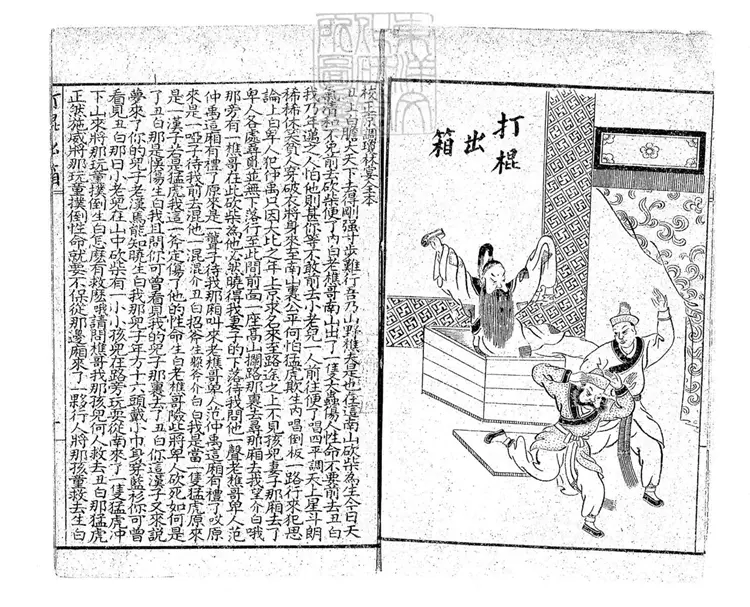 打棍
出
箱
校正京調瓊林宴全本
丑上白膽大天下去得剛强寸步難行吾乃山野樵者是也住這南山砍柴為生今日天
氣清和不免前去砍柴便了內白老樵哥南山出了一隻大蟲傷人性命不要前去丑白
我乃年邁之人怕他則甚你等不敢前去小老兒一人前往便了唱四平調天上星斗朗
稀稀侏來貧人穿破衣將身來至南山裏為甚何怕猛虎欺生內唱倒板一路行來犯思
論上白卑人范仲禹只因大比之年上京求名來至路途之上不見孩兒妻子那廂去了
卑人各處尋覓並無下落行至此間前面一座高山攔路那裏去尋那廂去我望介白哦
那旁有一樵哥在此砍柴為他必然曉得我妻子的下落待我問他一聲老樵哥卑人范
仲禹這廂有禮了原來是一聾子待我那廂叫來老樵哥卑人范仲禹這廂有禮了哎原
來是一啞子待我前去混他一混混介丑白招斧生躲介介白我是當一隻猛虎原來
是一漢子若是猛虎我這一斧定傷了他的性命生白老樵哥險些將卑人砍死如何是
了丑白那是悞傷生白我且問你可曾看見我的兒子那裏去了丑白你這漢子又來説
夢來了你的兒子老漢焉能知曉生白我那兒子年方十六頭戴小巾身穿藍衫你可曾
看見丑白那日小老兒在山中砍柴有一小小孩兒在路旁玩耍從南來了一隻猛虎冲
下山來將那玩童撲倒生白怎麽有救麽哦請問樵哥我那孩兒何人救去丑白那猛虎
正然施威將那玩童撲倒性命就要不保從那邊廂來了一夥行人將那孩童救去生白
打棍出箱